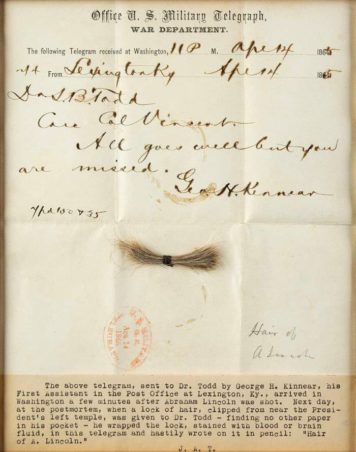 Office U. S. Military Telegraph,
WAR DEPARTMENT.
The following Telegram received at Washington, 11 P M. Apl 14 1865
From Lexington Ky Apl 14 1865
Dr L B Todd
Care Col Vincent
All goes well but you
are missed.
Geo. H. Kinnear
Hair of
A Lincoln
The above telegram, sent to Dr. Todd by George H. Kinnear, his
First Assistant in the Post Office at Lexington, Ky., arrived in
Washington a few minutes after Abraham Lincoln was shot. Next day,
at the postmortem, when a lock of hair, clipped from near the Presi-
dent's left temple, was given to Dr. Todd - finding no other paper
in his pocket - he wrapped the lock, stained with blood or brain
fluid, in this telegram and hastily wrote on it in pencil: "Hair
of A. Lincoln."